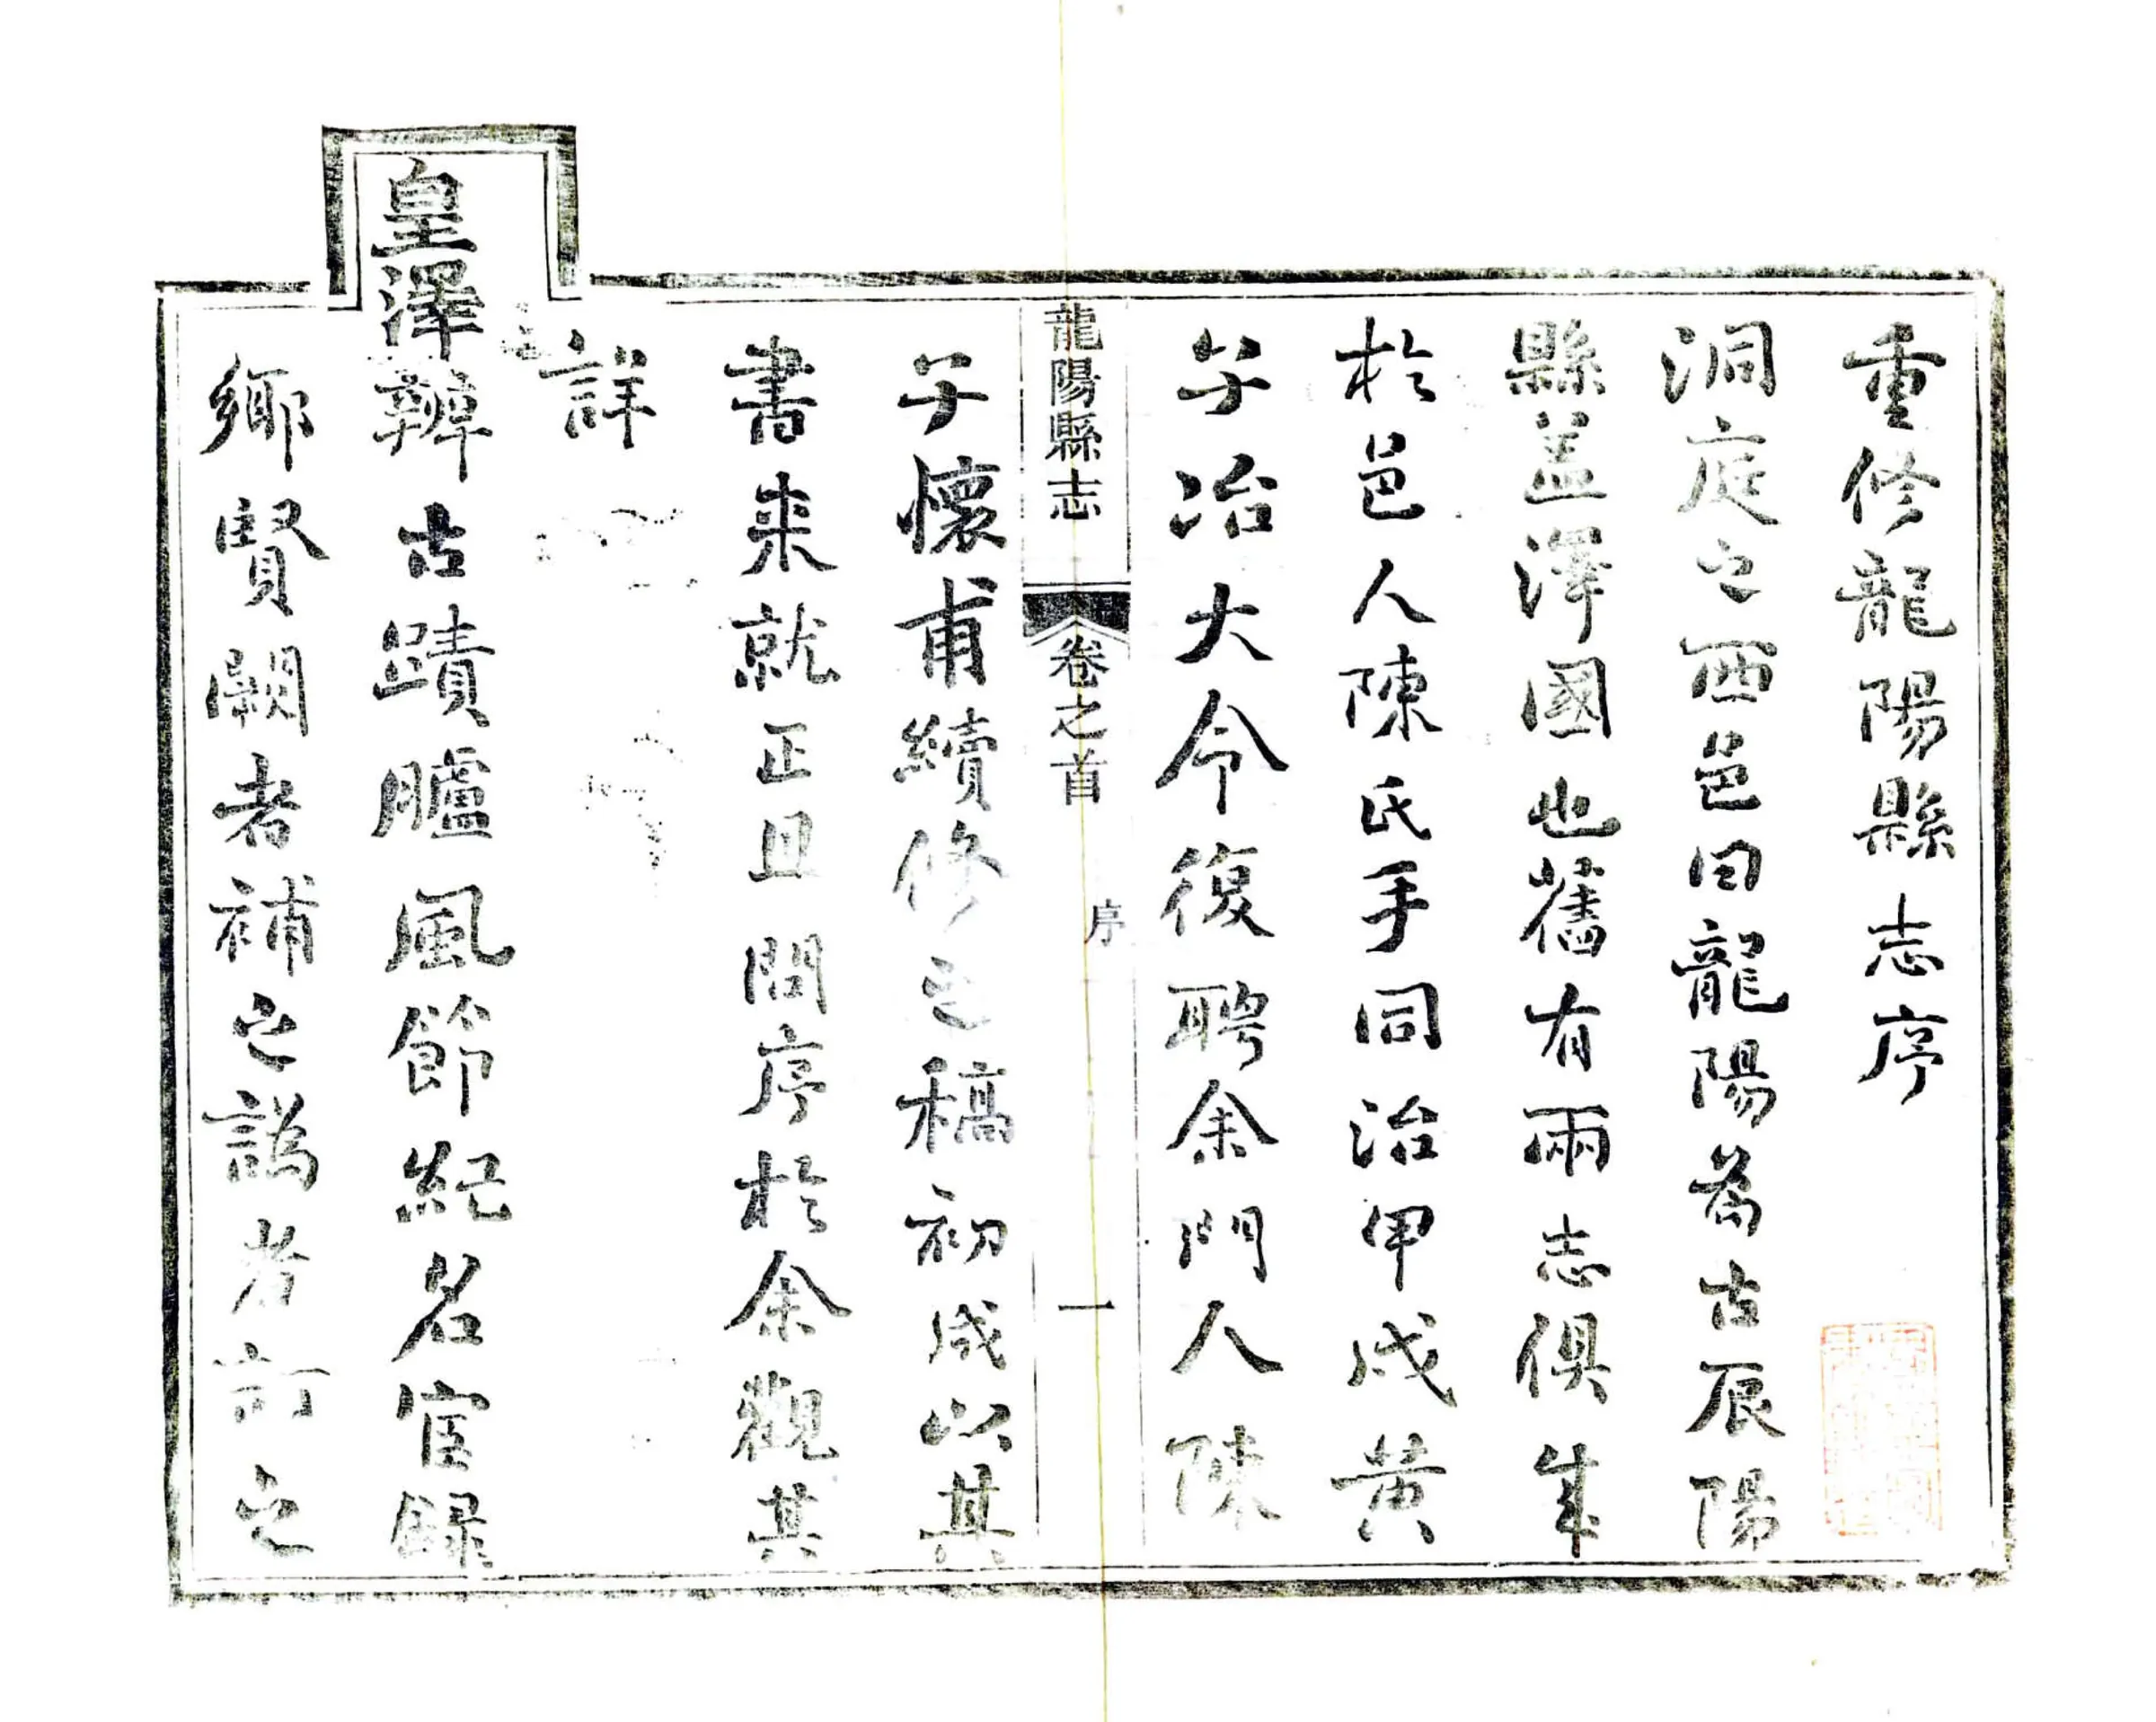 重修龍陽縣志序
洞庭之西邑曰龍陽為古辰陽
縣盖澤國也舊有兩志俱成
於邑人陳氏手同治甲戌黄
子冶大令復聘余門人陳
龍陽縣志 卷之首 序 一
子懷甫續修之稿初成以其
書来就正且問序於余觀其
詳
皇澤辯古蹟臚風節紀名宦録
鄉賢闕者補之譌者訂之